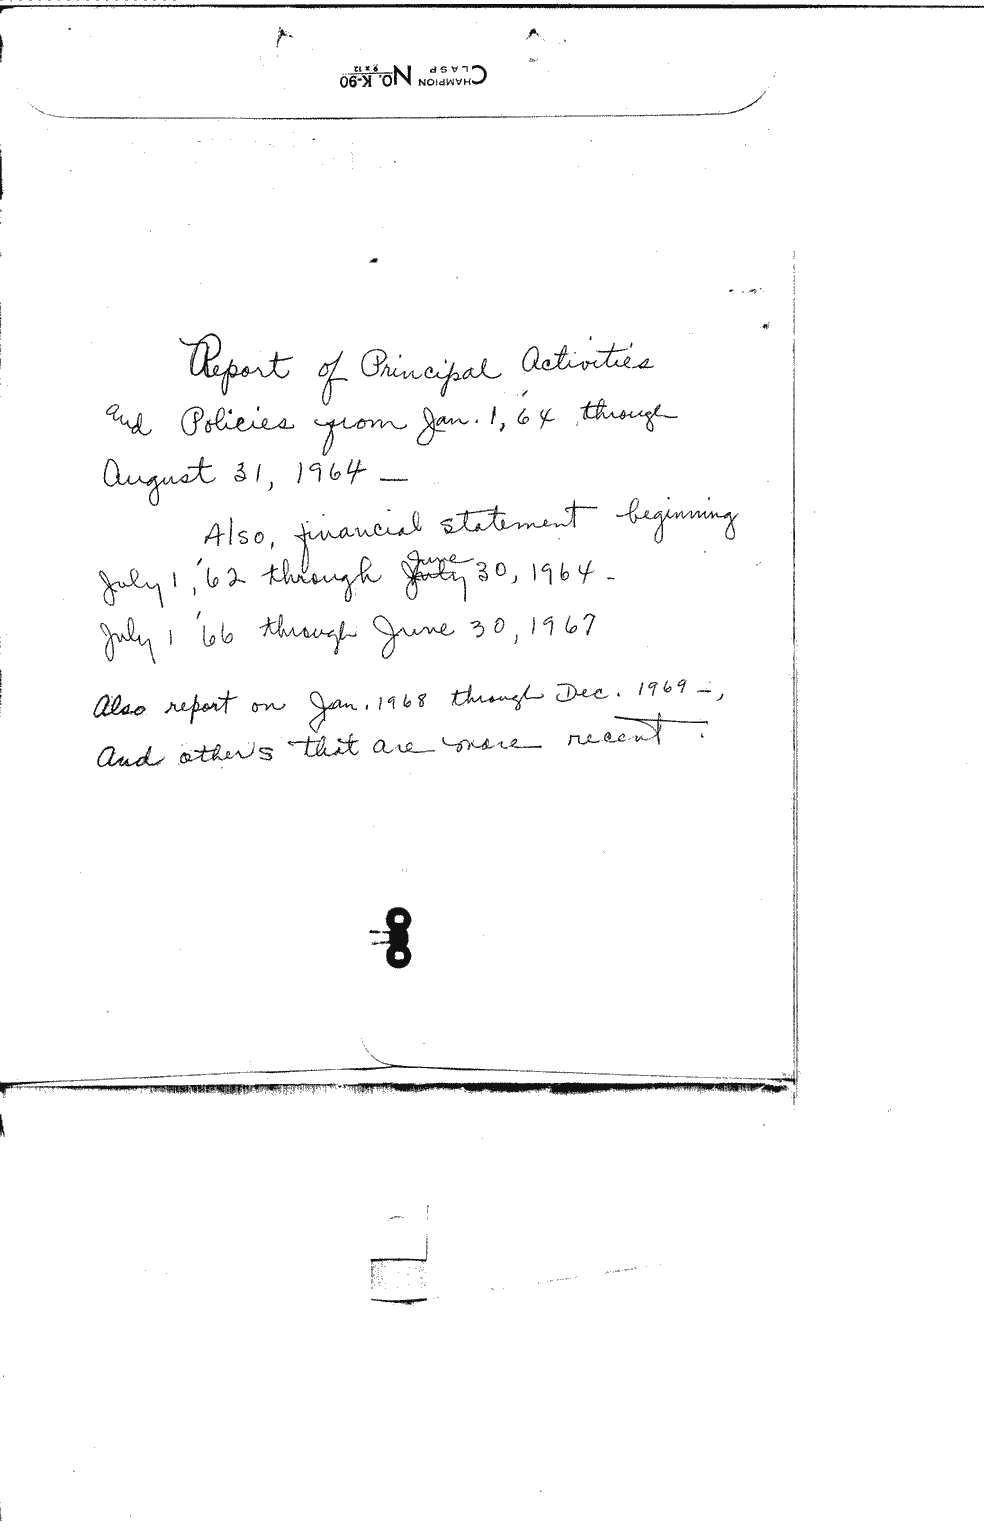 CHAMPION CLASP NO. K-90 9 x 12
Report of Principal Activities
and Policies from Jan. 1, '64 through
August 31, 1964 —
Also, financial statement beginning
July 1, '62 through July June 30, 1964 -
July 1 '66 through June 30, 1967
Also report on Jan. 1968 through Dec. 1969 -,
And others that are more recent.